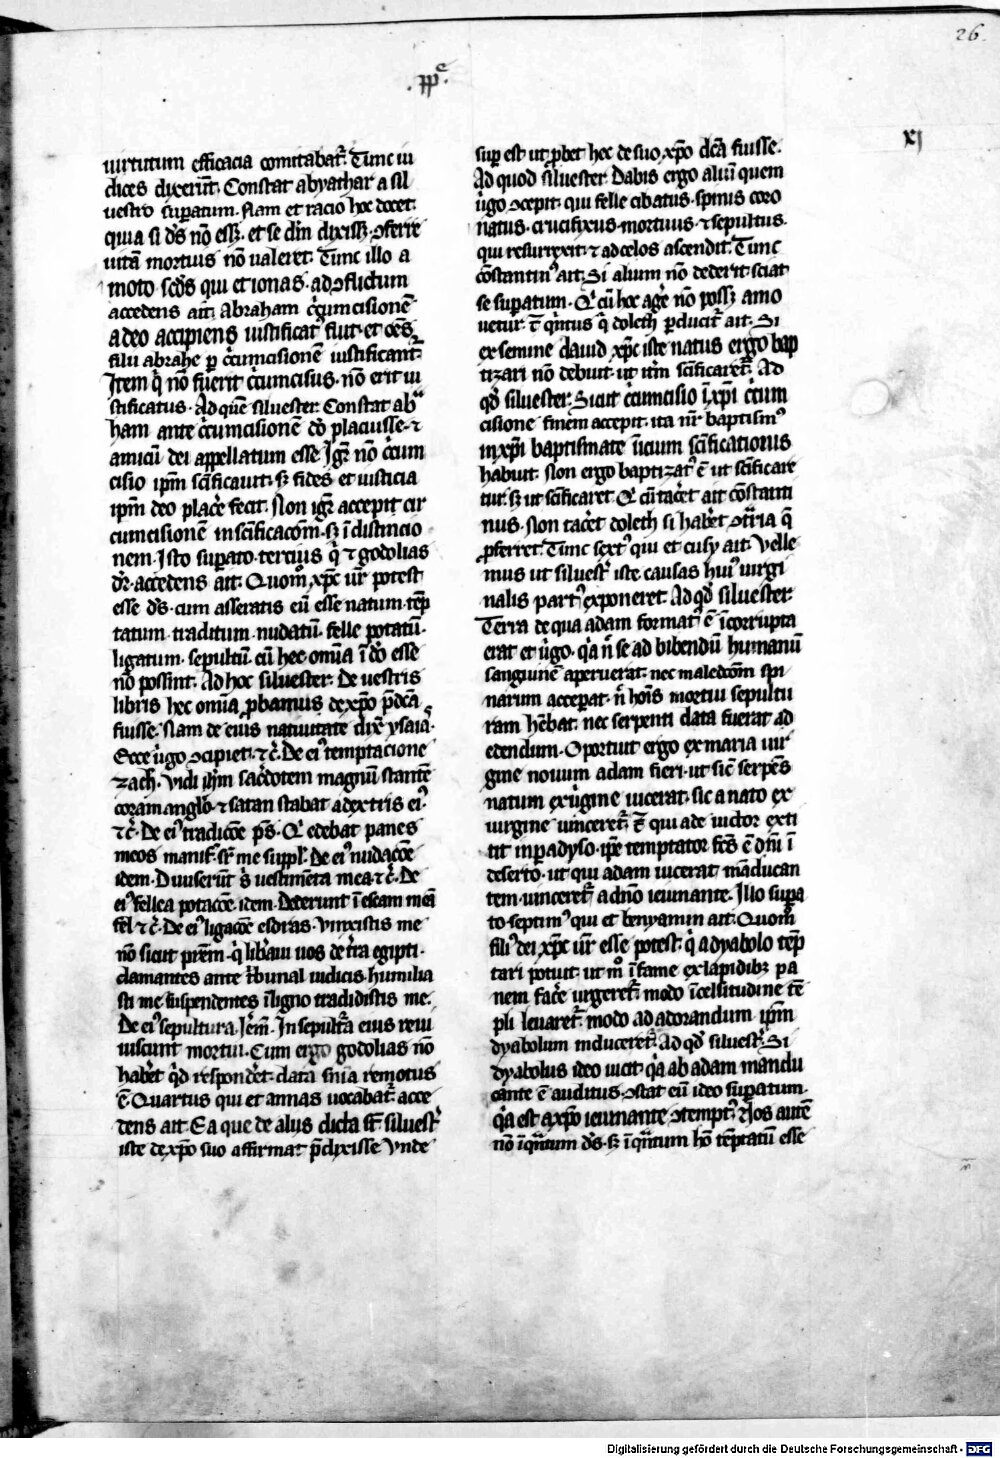 26.
.pp͛.
xj
uirtutum efficacia comitabat᷑. Tunc iu
dices dixerūt. Constat abyathar a sil
uestro suꝑatum. Nam et racio hoc docet.
quia si dꝰ nō ess; et se dm̄ dixiss; ꝯferre
uitā mortuis nō ualeret. Tunc illo a
moto scds qui et ionas. ad ꝯflictum
accedens ait. Abraham c̓cumcisionē
a deo accipiens iustificatꝰ fuit. et oēs
filii abrahe ꝑ c̓cumcisionē iustificant᷑.
Item q̓ nō fuerit c̓cumcisus. nō erit iu
stificatus. Ad quē siluester. Constat ab̓
ham ante c̓cumcisionē dō placuisse. ⁊
amicū dei appellatum esse. Igr̄ nō c̓cum
cisio ip̄m sc̄ificauit. s; fides et iusticia
ip̄m deo plac̓e fecit. Non igr̄ accepit cir
cumcisionē in sc̄ificacōm. s; ī distinctio
nem. Isto suꝑato. tercius q̓ ⁊ godolias
dr̄. accedens ait. Quom̊ xp̄c ur̄ potest
esse ds̄. cum asseratis eū esse natum. tēp
tatum. traditum. nudatū. felle potatū.
ligatum. sepultū. cū hec om̄ia ī dō esse
nō possint. Ad hoc siluester. De uestris
libris hec om̄ia ꝓbamus de xp̄o p̄dc̄a
fuisse. Nam de eius natiuitate dix̄ ysaiā.
Ecce ū̓go ꝯcipiet. ⁊c̄. De eiꝰ temptacione
zach̄. Vidi ih̄m sac̓dotem magnū stantē
coram anglō. ⁊ satan stabat a dextris eiꝰ.
⁊c̄. De eiꝰ tradicōe ps̄. Qⁱ edebat panes
meos manif̄. sr̄ me suppl̄. De eiꝰ nudacōe
idem. Diuiserūt s̓ uestimēta mea. ⁊c̄. De
eiꝰ fellea potacōe idem. Dederunt ī escam meā
fel ⁊c̄. De eiꝰ ligacōe esdras. Vinxistis me
nō sicut prēm. q̓ lib̓aui uos de t̓ra egipti.
clamantes ante t̓bunal iudicis. humilia
sti me. suspendentes ī ligno tradidistis me.
De eiꝰ sepultura. Jer̄m. In sepult̓a eius reui
uiscunt mortui. Cum ergo godolias nō
hab̓et q̓d respond̓et. data sn̄ia remotus
ē. Quartus qui et annas uocabat᷑. acce
dens ait. Ea que de aliis dicta st̄ siluestꝰ
iste de xp̄o suo affirmat p̄dixisse. Vnde
suꝑ est ut ꝓbet hec de suo xp̄o dc̄a fuisse.
Ad quod siluester. Dabis ergo aliū quem
ū̓go ꝯcepit. qui felle cibatus. spinis coro
natus. crucifixus. mortuus. ⁊ sepultus.
qui resurrexit. ⁊ ad celos ascendit. Tunc
cōstantinꝰ ait. Si alium nō dederit. sciat
se suꝑatum. Qⁱ cū hoc ag̓e nō poss; amo
uetur. ⁊ qⁱntus q̓ doleth ꝑducit᷑. ait. Si
ex semine dauid xp̄c iste natus ergo bap
tizari nō debuit. ut itm̄ sc̄ificaret᷑. Ad
qd̓ siluester. Sicut c̓cumcisio ī xp̄i c̓cum
cisione finem accepit. ita nr̄ baptismꝰ
in xp̄i baptismate īicium sc̄ificationis
habuit. Non ergo baptizatꝰ ē ut sc̄ificare
tur. s; ut sc̄ificaret. Qⁱ cū tac̓et ait cōstanti
nus. Non tac̓et doleth si hab̓et ꝯt̓ria q̄
ꝓferret. Tunc sextꝰ qui et cusy ait. Velle
mus ut siluestꝰ iste. causas huiꝰ uirgi
nalis partꝰ exponeret. Ad qd̓ siluester.
Terra de qua adam formatꝰ ē īcorrupta
erat et ū̓go. q̓a n̄ se ad bibendū humanū
sanguinē aperuerat. nec maledcōm spi
narum acceperat. n̄ hoīs mortui sepultu
ram h̄ebat. nec serpenti data fuerat ad
edendum. Oportuit ergo ex maria uir
gine nouum adam fieri. ut sic̄ serpēs
natum ex ū̓gine uicerat. sic a nato ex
uirgine uinceret᷑. ⁊ qui ade uictor exti
tit in ꝑadyso. ip̄e temptator fc̄s ē dn̄i ī
deserto. ut qui adam uicerat māducan
tem. uinceret᷑ a dn̄o ieiunante. Illo suꝑa
to. septimꝰ qui et benyamin ait. Quom̊
filiꝰ dei xp̄c ur̄ esse potest. q̓ a dyabolo tēp
tari potuit. ut m̊ ī fame ex lapidib; pa
nem fac̓e urgeret᷑. modo ī celsitudine tē
pli leuaret᷑. modo ad adorandum ip̄m
dyabolum induceret᷑. Ad qd̓ siluestꝰ. Si
dyabolus ideo uicit. q̓a ab adam mandu
cante ē auditus. ꝯstat eū ideo suꝑatum.
q̓a est a xp̄o ieiunante ꝯtemptꝰ. Nos autē
nō īqⁱntum ds̄. s; īqⁱntum hō tēptatū esse
Digitalisierung gefördert durch die Deutsche Forschungsgemeinschaft - DFG